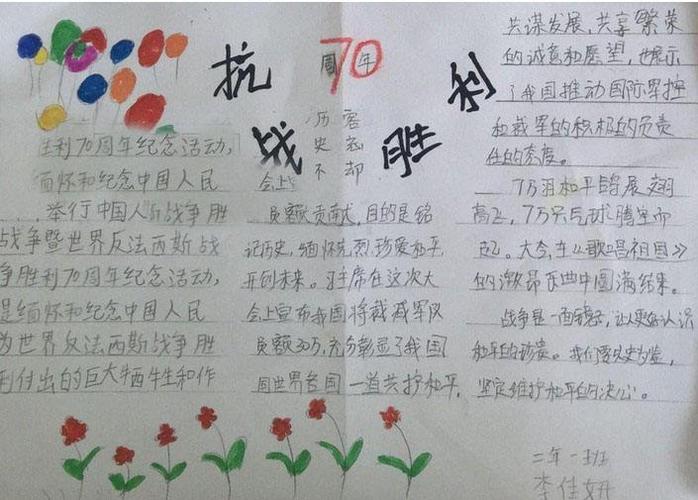 抗战胜利
70周年
历史不容忘却
胜利70周年纪念活动,
缅怀和纪念中国人民
举行中国人民战争胜
战争暨世界反法西斯战
争胜利70周年纪念活动,
是缅怀和纪念中国人民
为世界反法西斯战争胜
利付出的巨大牺牲和作
会上
员额贡献,目的是铭
记历史,缅怀先烈,珍爱和平,
开创未来。习主席在这次大
会上宣布我国将裁减军队
员额30万,充分彰显了我国
同世界各国一道共护和平,
共谋发展,共享繁荣
的诚意和愿望,也展示
了我国推动国际军控
和裁军的积极的负责
任的态度。
7万羽和平鸽展翅
高飞,7万只气球腾空而
起。大会在《歌唱祖国》
的激昂 曲中圆满结束。
战争是一面镜子,让人更好认识
和平的珍贵。我们要以史为鉴,
坚定维护和平的决心。
二年一班
李佳妍